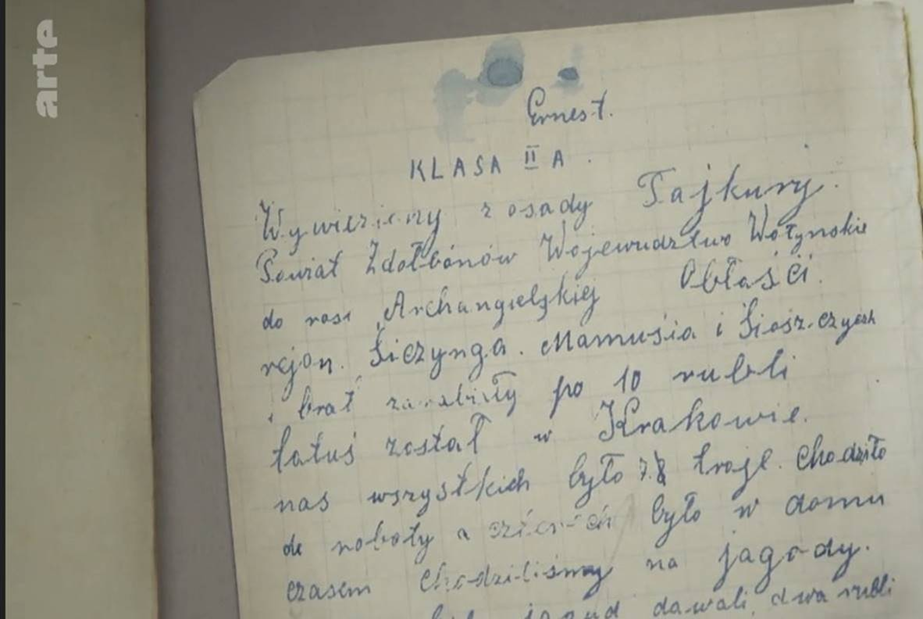 arte
Ernest.
KLASA II A.
Wywieziony z osady Tajkury.
Powiat Zdołbónów Wojewudztwo Wołynskie
do rosi Archangielskiej Obłaści.
rejon.
Mamusia i
i brat zarabiały po 10 rubli
tatuś został w Krakowie.
nas wszystkich było troje chodziło
do roboty a było w domu
czasem chodziliśmy na jagody.
jagud dawali dwa rubli